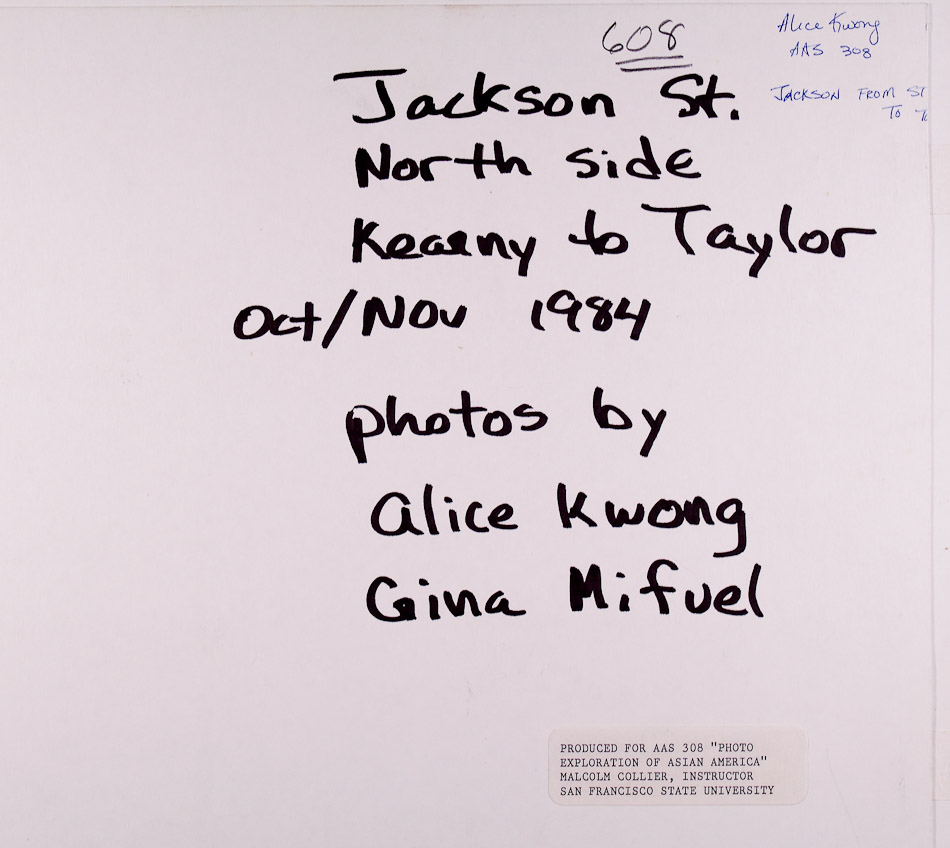 608
Alice Kwong
AAS 308
JACKSON FROM ST
TO
Jackson St.
North side
Kearny to Taylor
Oct/Nov 1984
photos by
Alice Kwong
Gina Mifuel
PRODUCED FOR AAS 308 "PHOTO
EXPLORATION OF ASIAN AMERICA"
MALCOLM COLLIER, INSTRUCTOR
SAN FRANCISCO STATE UNIVERSITY